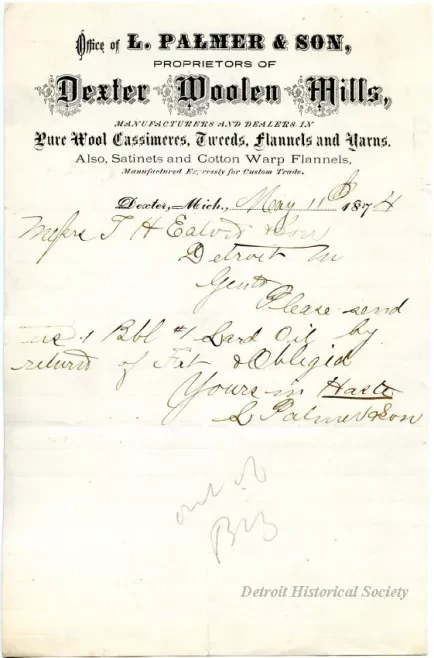 Office of L. PALMER & SON,
PROPRIETORS OF
Dexter Woolen Mills,
MANUFACTURERS AND DEALERS IN
Pure Wool Cassimeres, Tweeds, Flannels and Yarns.
Also, Satinets and Cotton Warp Flannels,
Manufactured Expressly for Custom Trade.
Dexter, Mich., May 11th 1874
Messrs T H Eaton & Son
Detroit M
Gents
Please send
us 1 Bbl #1 Lard Oil by
return of Frt & Obligid
Yours in Haste
L Palmer & Son
out of
Detroit Historical Society